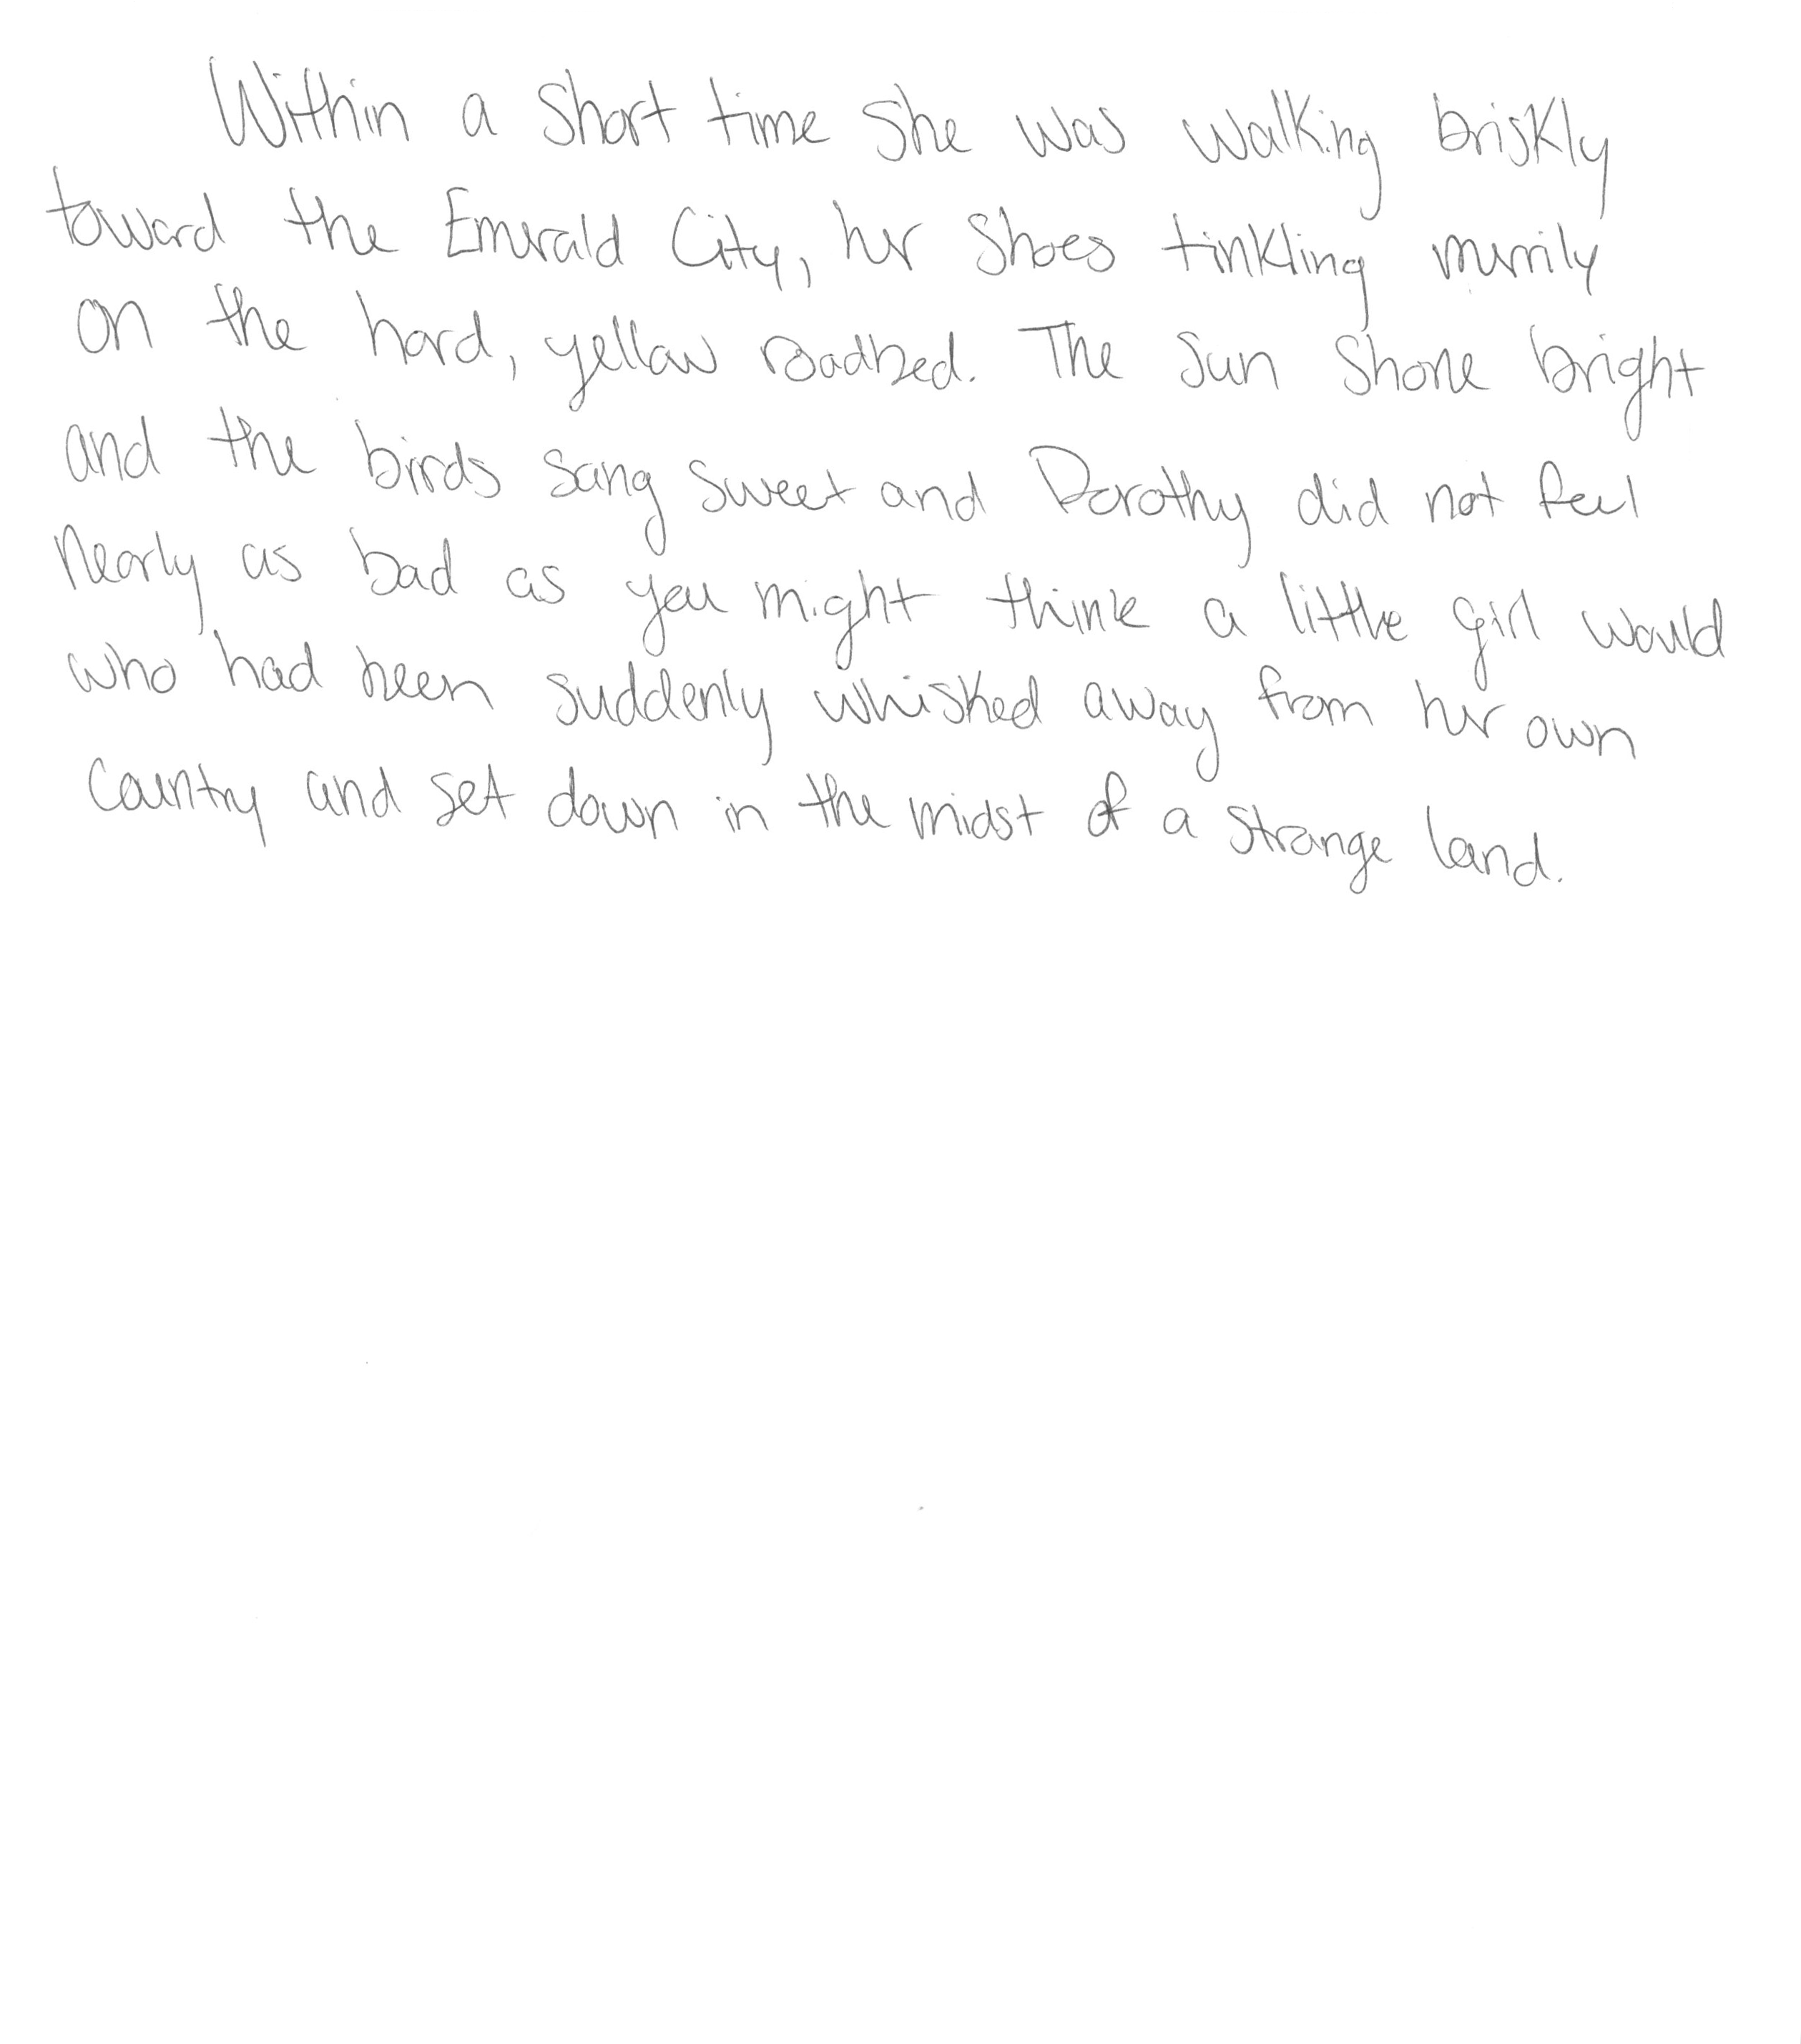 Within a short time she was walking briskly
toward the Emerald City, her shoes tinkling merrily
on the hard, yellow roadbed. The sun shone bright
and the birds sang sweet and Dorothy did not feel
nearly as bad as you might think a little girl would
who had been suddenly whisked away from her own
country and set down in the midst of a strange land.